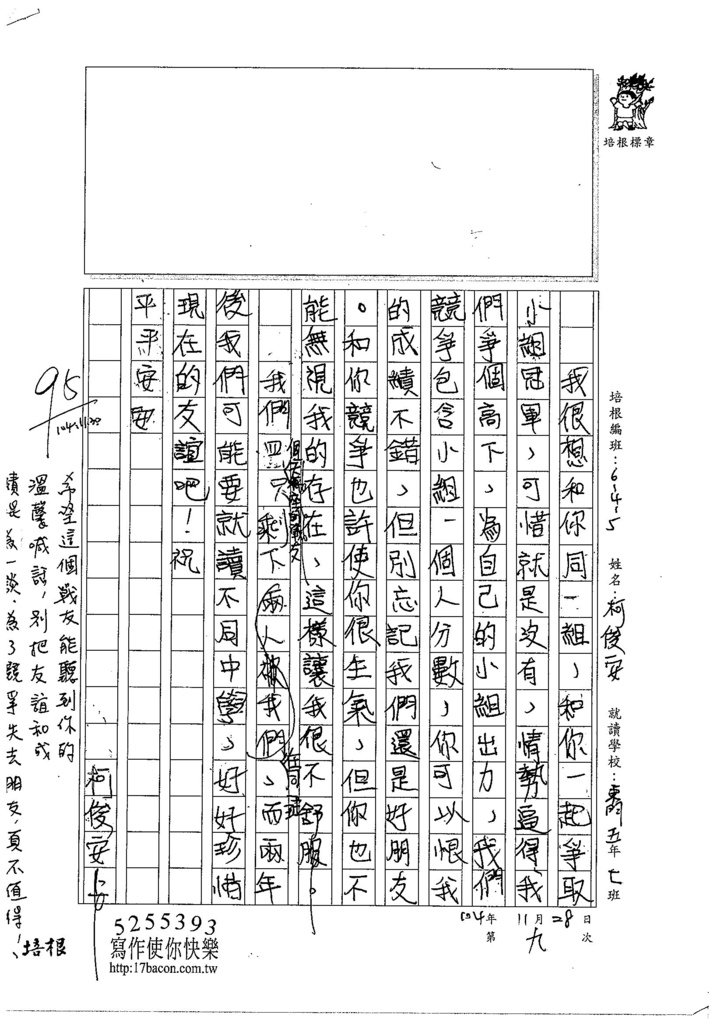 培根標章
培根編班：6-4-5　姓名：柯俊安　就讀學校：東門五年七班
104年11月28日
第九次
我很想和你同一組，和你一起爭取
小組冠軍，可惜就是沒有，情勢逼得我
們爭個高下，為自己的小組出力，我們
競爭包含小組一個人分數，你可以恨我
的成績不錯，但別忘記我們還是好朋友
。和你競爭也許使你很生氣，但你也不
能無視我的存在，這樣讓我很不舒服。
我們四只剩下兩人
我們，而兩年
在同班
後我們可能要就讀不同中學，好好珍惜
現在的友誼吧！祝
平平安安
柯俊安上
95
104.11.28
希望這個戰友能聽到你的
溫馨喊話，別把友誼和成
績混為一談，為了競爭失去朋友，真不值得！
培根
5255393
寫作使你快樂
http:17bacon.com.tw